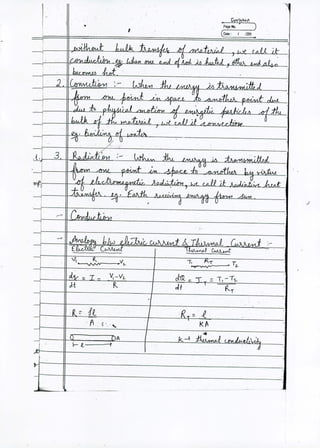 Page No.
Date: / /20
without bulk transfer of material, we call it
conduction eg. when one end of rod is heated, other end also
becomes hot.
2. Convection :- When the energy is transmitted
from one point in space to another point due
due to physical motion of energetic particles of the
bulk of the material, we call it convection.
eg. Boiling of water
3. Radiation :- When the energy is transmitted
from one point in space to another by virtue
of electromagnetic radiation, we call it radiative heat
transfer. eg. Earth receiving energy from sun.
- Conduction
- Analogy b/w electric current & Thermal Current :-
Electric Current Thermal Current
V₁ R V₂ T₁ R_T T₂
dq/dt = I = V₁-V₂/R dQ/dt = I_T = T₁-T₂/R_T
R = ρl/A R_T = l/KA
l K → thermal conductivity